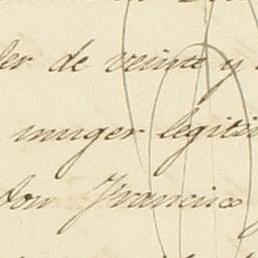 der de veinte y
muger legiti
don Francisco